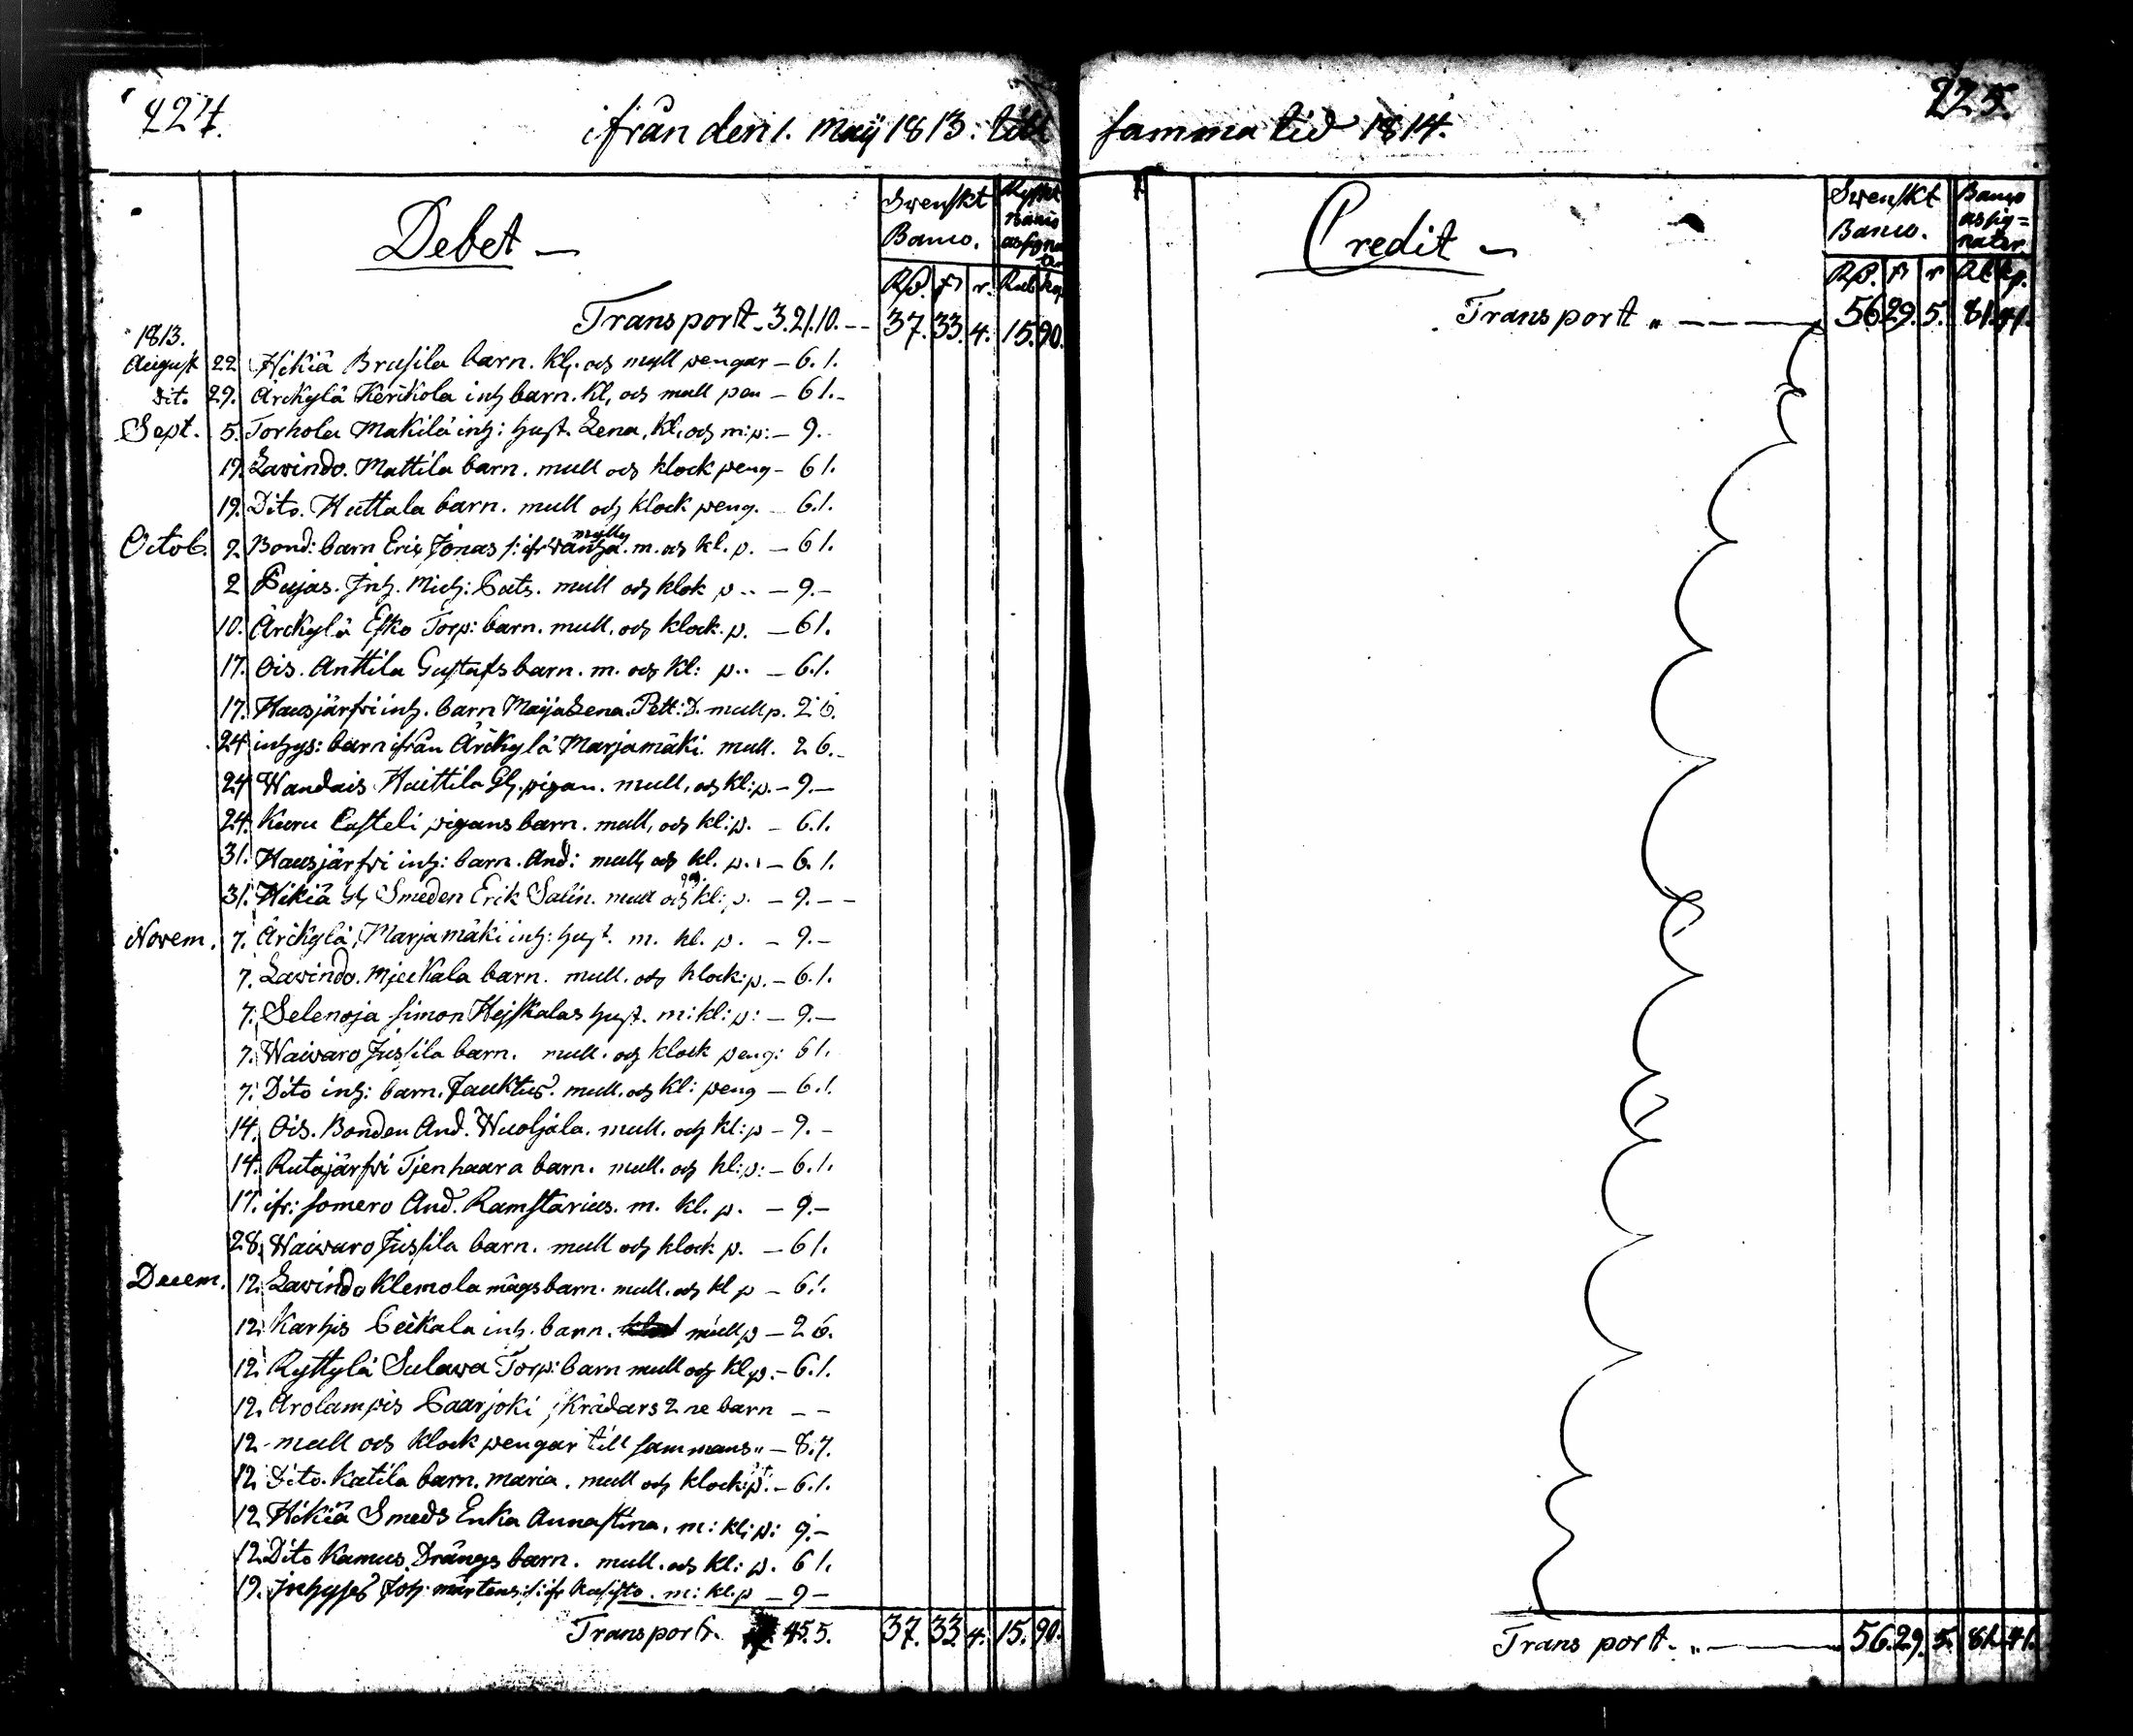 224.
ifrån den 1. Maij 1813. till
Debet
Swenskt Banco.
Ryskt Banco assignater
Rd. ß r. Rub. kop.
Transport 3.21.10. 37. 33. 4. 15. 90.
1813.
August 22 Hikiä Brusila barn. kl. och mull pengar – 6. 1.
Dit. 29. Arckylä Kerikola inh barn. kl, och mull pen – 6 1.
Sept. 5. Torhola Makilä inh: hust. Lena, kl. och m: p: – 9.
19. Lavindo. Mattila barn. mull och klock peng – 6 1.
19. Dito. Huttala barn. mull och klock peng. 6. 1.
Octob. 2. Bond: barn Eric Jonas s: ifr wanha mylly. m. och kl. p. – 6 1.
2 Pujas. Inh. Mich: Pats. mull och klok p. – 9.
10. Arckylä Esko Torp: barn. mull. och klock. p. – 6 1.
17. Ois. Anttila Gustafs barn. m. och kl: p. – 6. 1.
17. Hausjärfvi inh. barn Maija Lena. Pett: D. mull p. 2 6.
24 inhys: barn ifrån Arckylä Marjamäki. mull. 2 6.
24 Wandais Huittila Gl. pigan. mull, och kl: p. – 9.
24. Kuru Pasteli pigans barn. mull, och kl: p. – 6. 1.
31. Hausjärfvi inh: barn. And: mull, och kl. p. – 6. 1.
31. Hikiä Gl Smeden Erik Salin. mull och kl: p. – 9.
Novem. 7. Arckylä, Marjamäki inh: hust. m. kl. p. – 9.
7. Lavindo. Mickala barn. mull. och klock: p. – 6. 1.
7. Selenoja simon Hejskalas hust. m: kl: p: – 9.
7. Waivaro Jussila barn. mull. och klock peng: 6 1.
7. Dito inh: barn. mull. och kl: peng – 6. 1.
14. Ois. Bonden And. Wuoljala. mull. och kl: p – 9.
14. Rutajärfvi Tjenhaara barn. mull. och kl: p: – 6. 1.
17. ifr: somero And. Ramstarius. m. kl. p. – 9.
28. Waivaro Jussila barn. mull och klock p. – 6 1.
Decem. 12. Lavindo Klemola mågs barn. mull. och kl p – 6. 1.
12. Karhis Peckala inh. barn. mull p – 2 6.
12. Ryttylä Sulawa Torp: barn mull och kl p. – 6. 1.
12. Arolampis Paarjoki, Krädars 2 ne barn – –
12 mull och klock pengar till sammans – 8. 7.
12 Dito. Katila barn. maria. mull och klock: p: – 6. 1.
12 Hikiä Smeds Enka Annastina. m: kl: p: 9.
12 Dito Kamus Drängs barn. mull. och kl: p. 6 1.
19. Inhyses Joh. mårtens: s: ifr m: kl. p – 9
Transport. 45. 5. 37. 33. 4. 15. 90.
225.
samma tid 1814.
Credit
Swenskt Banco.
Banco assignater
Rd. ß r Rl. kp.
Transport 56. 29. 5. 81. 41.
Transport. 56. 29. 5. 81. 41.